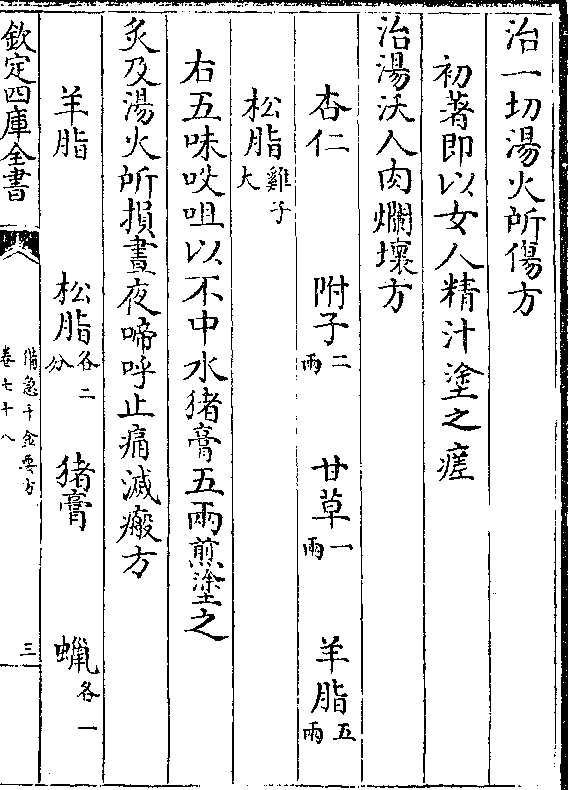 治一切湯火所傷方
初著即以女人精汁塗之瘥
治湯沃人肉爛壞方
杏仁 附子二兩 甘草一兩 羊脂五兩
松脂雞子大
右五味㕮咀以不中水猪膏五兩煎塗之
炙及湯火所損晝夜啼呼止痛滅瘢方
羊脂 松脂各二分 猪膏 蠟各一
欽定四庫全書
備急千金要方
卷七十八
三